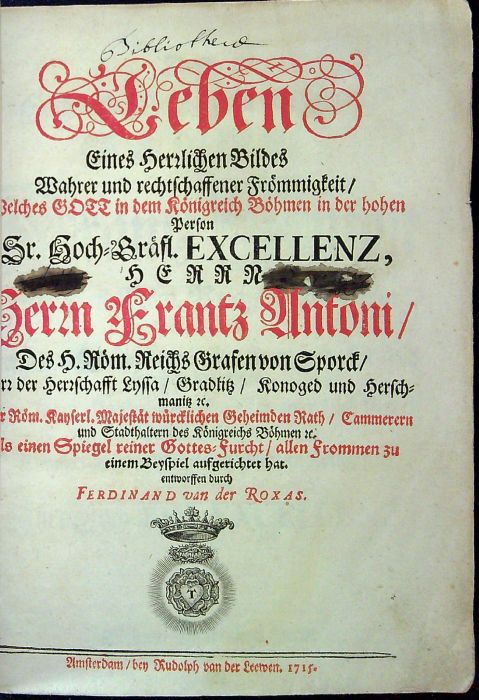 Bibliothec
Leben
Eines Herrlichen Bildes
Wahrer und rechtschaffener Frömmigkeit /
Welches GOTT in dem Königreich Böhmen in der hohen
Person
Sr. Hoch-Gräfl. EXCELLENZ,
HERRN
Herrn Frantz Antoni /
Des H. Röm. Reichs Grafen von Sporck /
rr der Herrschafft Lyssa / Gradlitz / Konoged und Hersch-
manitz ꝛc.
r Röm. Kayserl. Majestät würcklichen Geheimden Rath / Cammerern
und Stadthaltern des Königreichs Böhmen ꝛc.
ls einen Spiegel reiner Gottes-Furcht / allen Frommen zu
einem Beyspiel aufgerichtet hat.
entworffen durch
FERDINAND van der ROXAS.
T
Amsterdam / bey Rudolph van der Leewen. 1715.